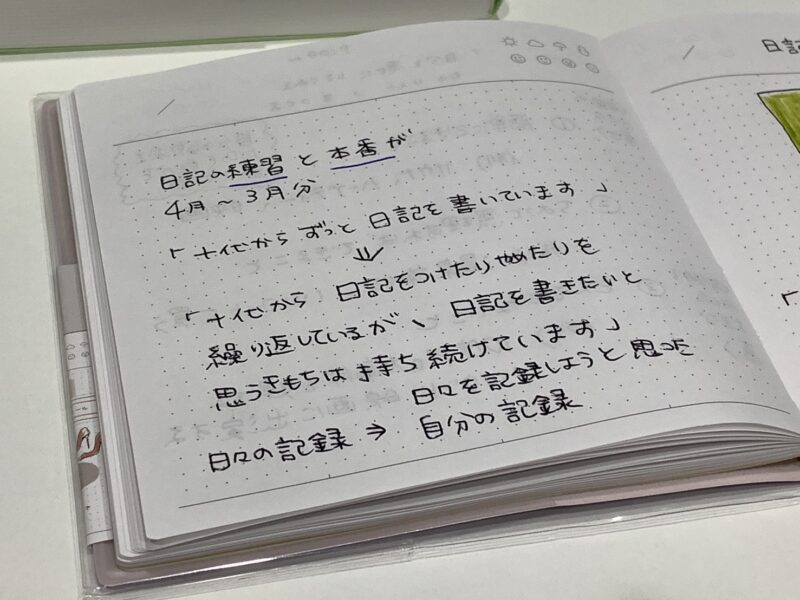 日記の練習 と 本番が
4月～3月分
「十代から ずっと 日記を 書いています」
⇓
「十代から 日記をつけたりやめたりを
繰り返しているが、日記を書きたいと
思うきもちは持ち続けています」
日々を記録しようと思った
日々の記録 ⇒ 自分の記録
日記